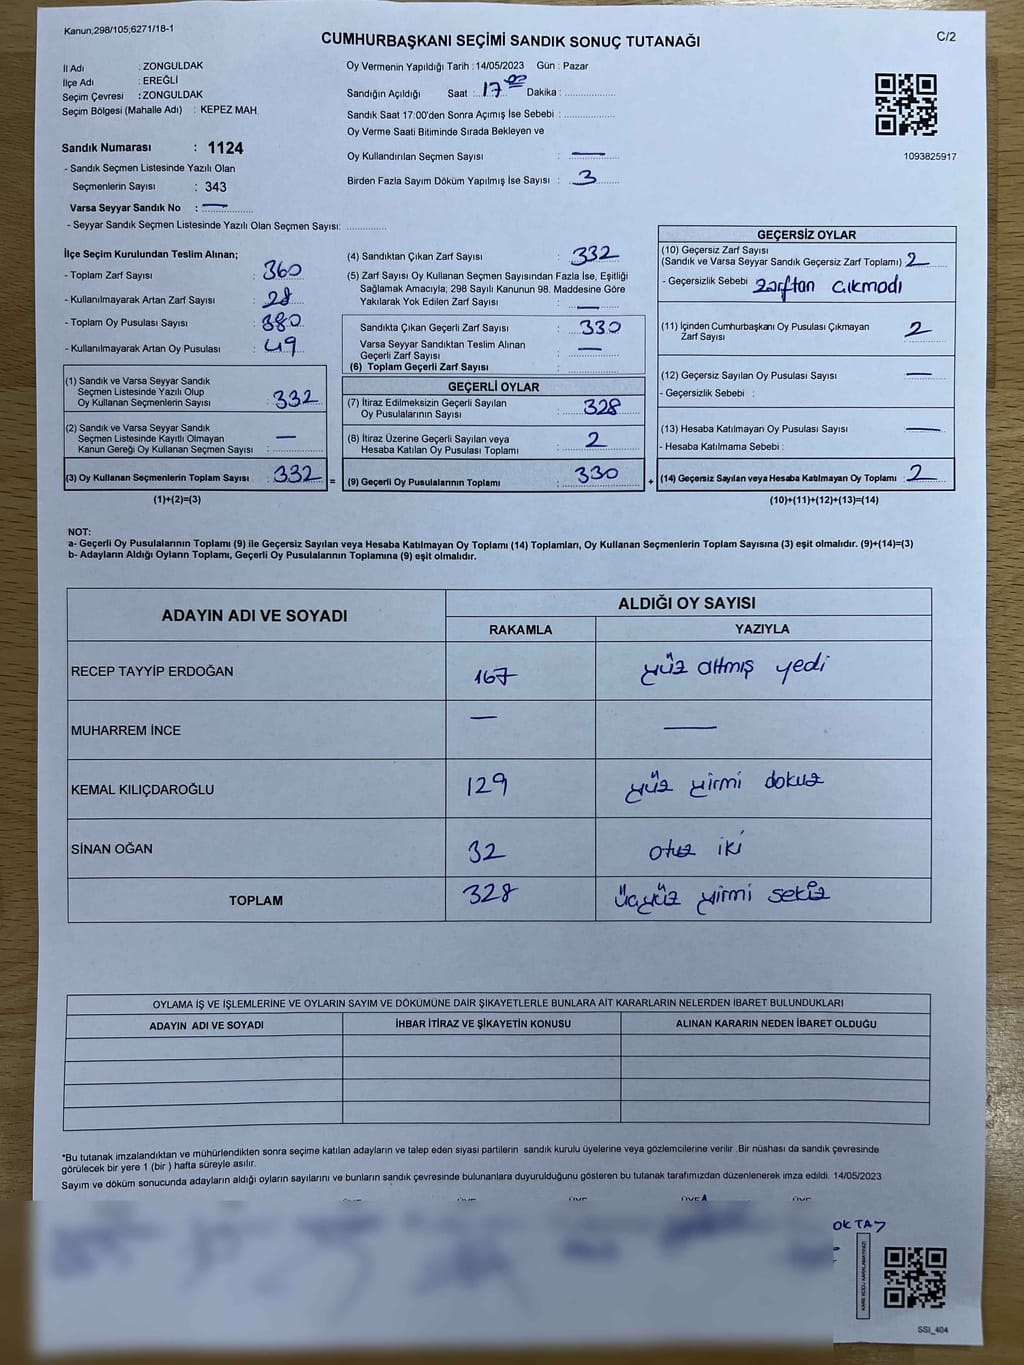 Kanun;298/105;6271/18-1
CUMHURBAŞKANI SEÇİMİ SANDIK SONUÇ TUTANAĞI
C/2
İl Adı : ZONGULDAK
İlçe Adı : EREĞLİ
Seçim Çevresi : ZONGULDAK
Seçim Bölgesi (Mahalle Adı) : KEPEZ MAH.
Sandık Numarası : 1124
- Sandık Seçmen Listesinde Yazılı Olan
Seçmenlerin Sayısı : 343
Varsa Seyyar Sandık No : —
- Seyyar Sandık Seçmen Listesinde Yazılı Olan Seçmen Sayısı: ..............
Oy Vermenin Yapıldığı Tarih : 14/05/2023 Gün : Pazar
Sandığın Açıldığı Saat :..17 00 Dakika : ..................
Sandık Saat 17:00'den Sonra Açımış İse Sebebi : ..................
Oy Verme Saati Bitiminde Sırada Bekleyen ve
Oy Kullandırılan Seçmen Sayısı : —
Birden Fazla Sayım Döküm Yapılmış İse Sayısı : 3
1093825917
İlçe Seçim Kurulundan Teslim Alınan;
- Toplam Zarf Sayısı : 360
- Kullanılmayarak Artan Zarf Sayısı : 28
- Toplam Oy Pusulası Sayısı : 380
- Kullanılmayarak Artan Oy Pusulası : 49
(1) Sandık ve Varsa Seyyar Sandık
Seçmen Listesinde Yazılı Olup
Oy Kullanan Seçmenlerin Sayısı : 332
(2) Sandık ve Varsa Seyyar Sandık
Seçmen Listesinde Kayıtlı Olmayan
Kanun Gereği Oy Kullanan Seçmen Sayısı : —
(3) Oy Kullanan Seçmenlerin Toplam Sayısı : 332 =
(1)+(2)=(3)
(4) Sandıktan Çıkan Zarf Sayısı : 332
(5) Zarf Sayısı Oy Kullanan Seçmen Sayısından Fazla İse, Eşitliği
Sağlamak Amacıyla; 298 Sayılı Kanunun 98. Maddesine Göre
Yakılarak Yok Edilen Zarf Sayısı : —
Sandıkta Çıkan Geçerli Zarf Sayısı : 330
Varsa Seyyar Sandıktan Teslim Alınan
Geçerli Zarf Sayısı : —
(6) Toplam Geçerli Zarf Sayısı :
GEÇERLİ OYLAR
(7) İtiraz Edilmeksizin Geçerli Sayılan
Oy Pusulalarının Sayısı : 328
(8) İtiraz Üzerine Geçerli Sayılan veya
Hesaba Katılan Oy Pusulası Toplamı : 2
(9) Geçerli Oy Pusulalarının Toplamı : 330 +
GEÇERSİZ OYLAR
(10) Geçersiz Zarf Sayısı
(Sandık ve Varsa Seyyar Sandık Geçersiz Zarf Toplamı) : 2
- Geçersizlik Sebebi : zarftan çıkmadı
(11) İçinden Cumhurbaşkanı Oy Pusulası Çıkmayan
Zarf Sayısı : 2
(12) Geçersiz Sayılan Oy Pusulası Sayısı : —
- Geçersizlik Sebebi :
(13) Hesaba Katılmayan Oy Pusulası Sayısı : —
- Hesaba Katılmama Sebebi :
(14) Geçersiz Sayılan veya Hesaba Katılmayan Oy Toplamı : 2
(10)+(11)+(12)+(13)=(14)
NOT:
a- Geçerli Oy Pusulalarının Toplamı (9) ile Geçersiz Sayılan veya Hesaba Katılmayan Oy Toplamı (14) Toplamları, Oy Kullanan Seçmenlerin Toplam Sayısına (3) eşit olmalıdır. (9)+(14)=(3)
b- Adayların Aldığı Oyların Toplamı, Geçerli Oy Pusulalarının Toplamına (9) eşit olmalıdır.
ADAYIN ADI VE SOYADI ALDIĞI OY SAYISI
RAKAMLA YAZIYLA
RECEP TAYYİP ERDOĞAN 167 yüz altmış yedi
MUHARREM İNCE — —
KEMAL KILIÇDAROĞLU 129 yüz yirmi dokuz
SİNAN OĞAN 32 otuz iki
TOPLAM 328 üçyüz yirmi sekiz
OYLAMA İŞ VE İŞLEMLERİNE VE OYLARIN SAYIM VE DÖKÜMÜNE DAİR ŞİKAYETLERLE BUNLARA AİT KARARLARIN NELERDEN İBARET BULUNDUKLARI
ADAYIN ADI VE SOYADI İHBAR İTİRAZ VE ŞİKAYETİN KONUSU ALINAN KARARIN NEDEN İBARET OLDUĞU
*Bu tutanak imzalandıktan ve mühürlendikten sonra seçime katılan adayların ve talep eden siyasi partilerin sandık kurulu üyelerine veya gözlemcilerine verilir .Bir nüshası da sandık çevresinde
görülecek bir yere 1 (bir ) hafta süreyle asılır.
Sayım ve döküm sonucunda adayların aldığı oyların sayılarını ve bunların sandık çevresinde bulunanlara duyurulduğunu gösteren bu tutanak tarafımızdan düzenlenerek imza edildi. 14/05/2023
OKTAY
KARE KODU KARALAMAYINIZ!
SSI_404